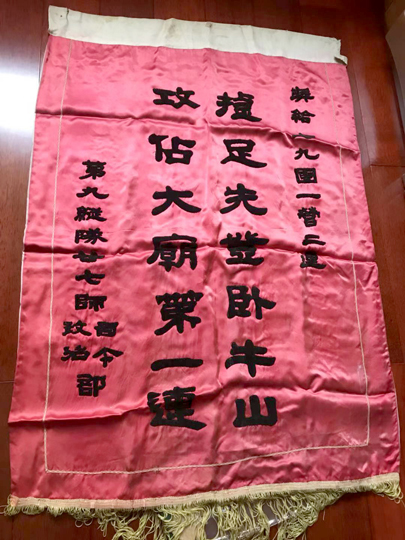 奬給七九團一营二連
捷足先登卧牛山
攻佔大廟第一連
第九縱隊廿七師司令政治部